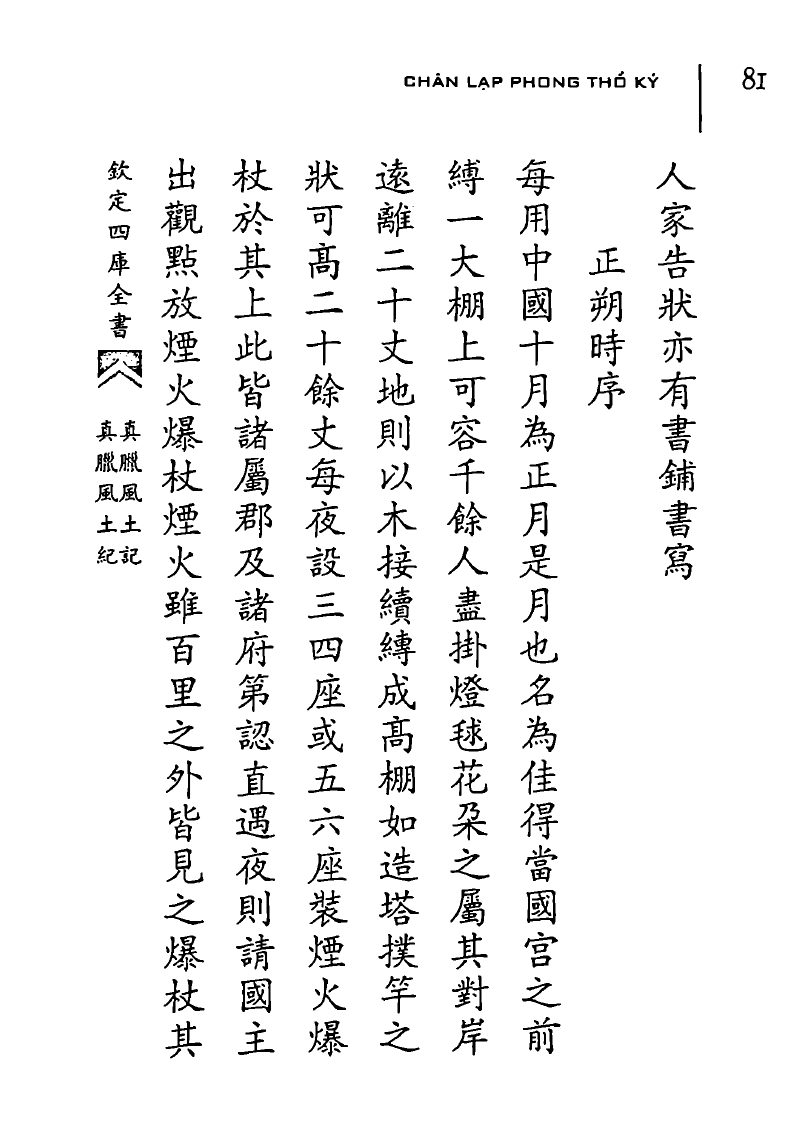 CHÂN LẠP PHONG THỔ KÝ
81
人家告狀亦有書鋪書寫
正朔時序
每用中國十月為正月是月也名為佳得當國宫之前
縛一大棚上可容千餘人盡掛燈毬花朶之屬其對岸
遠離二十丈地則以木接續縳成髙棚如造塔撲竿之
狀可髙二十餘丈每夜設三四座或五六座裝煙火爆
杖於其上此皆諸屬郡及諸府第認直遇夜則請國主
出觀點放煙火爆杖煙火雖百里之外皆見之爆杖其
欽定四庫全書
真臘風土記
真臘風土紀